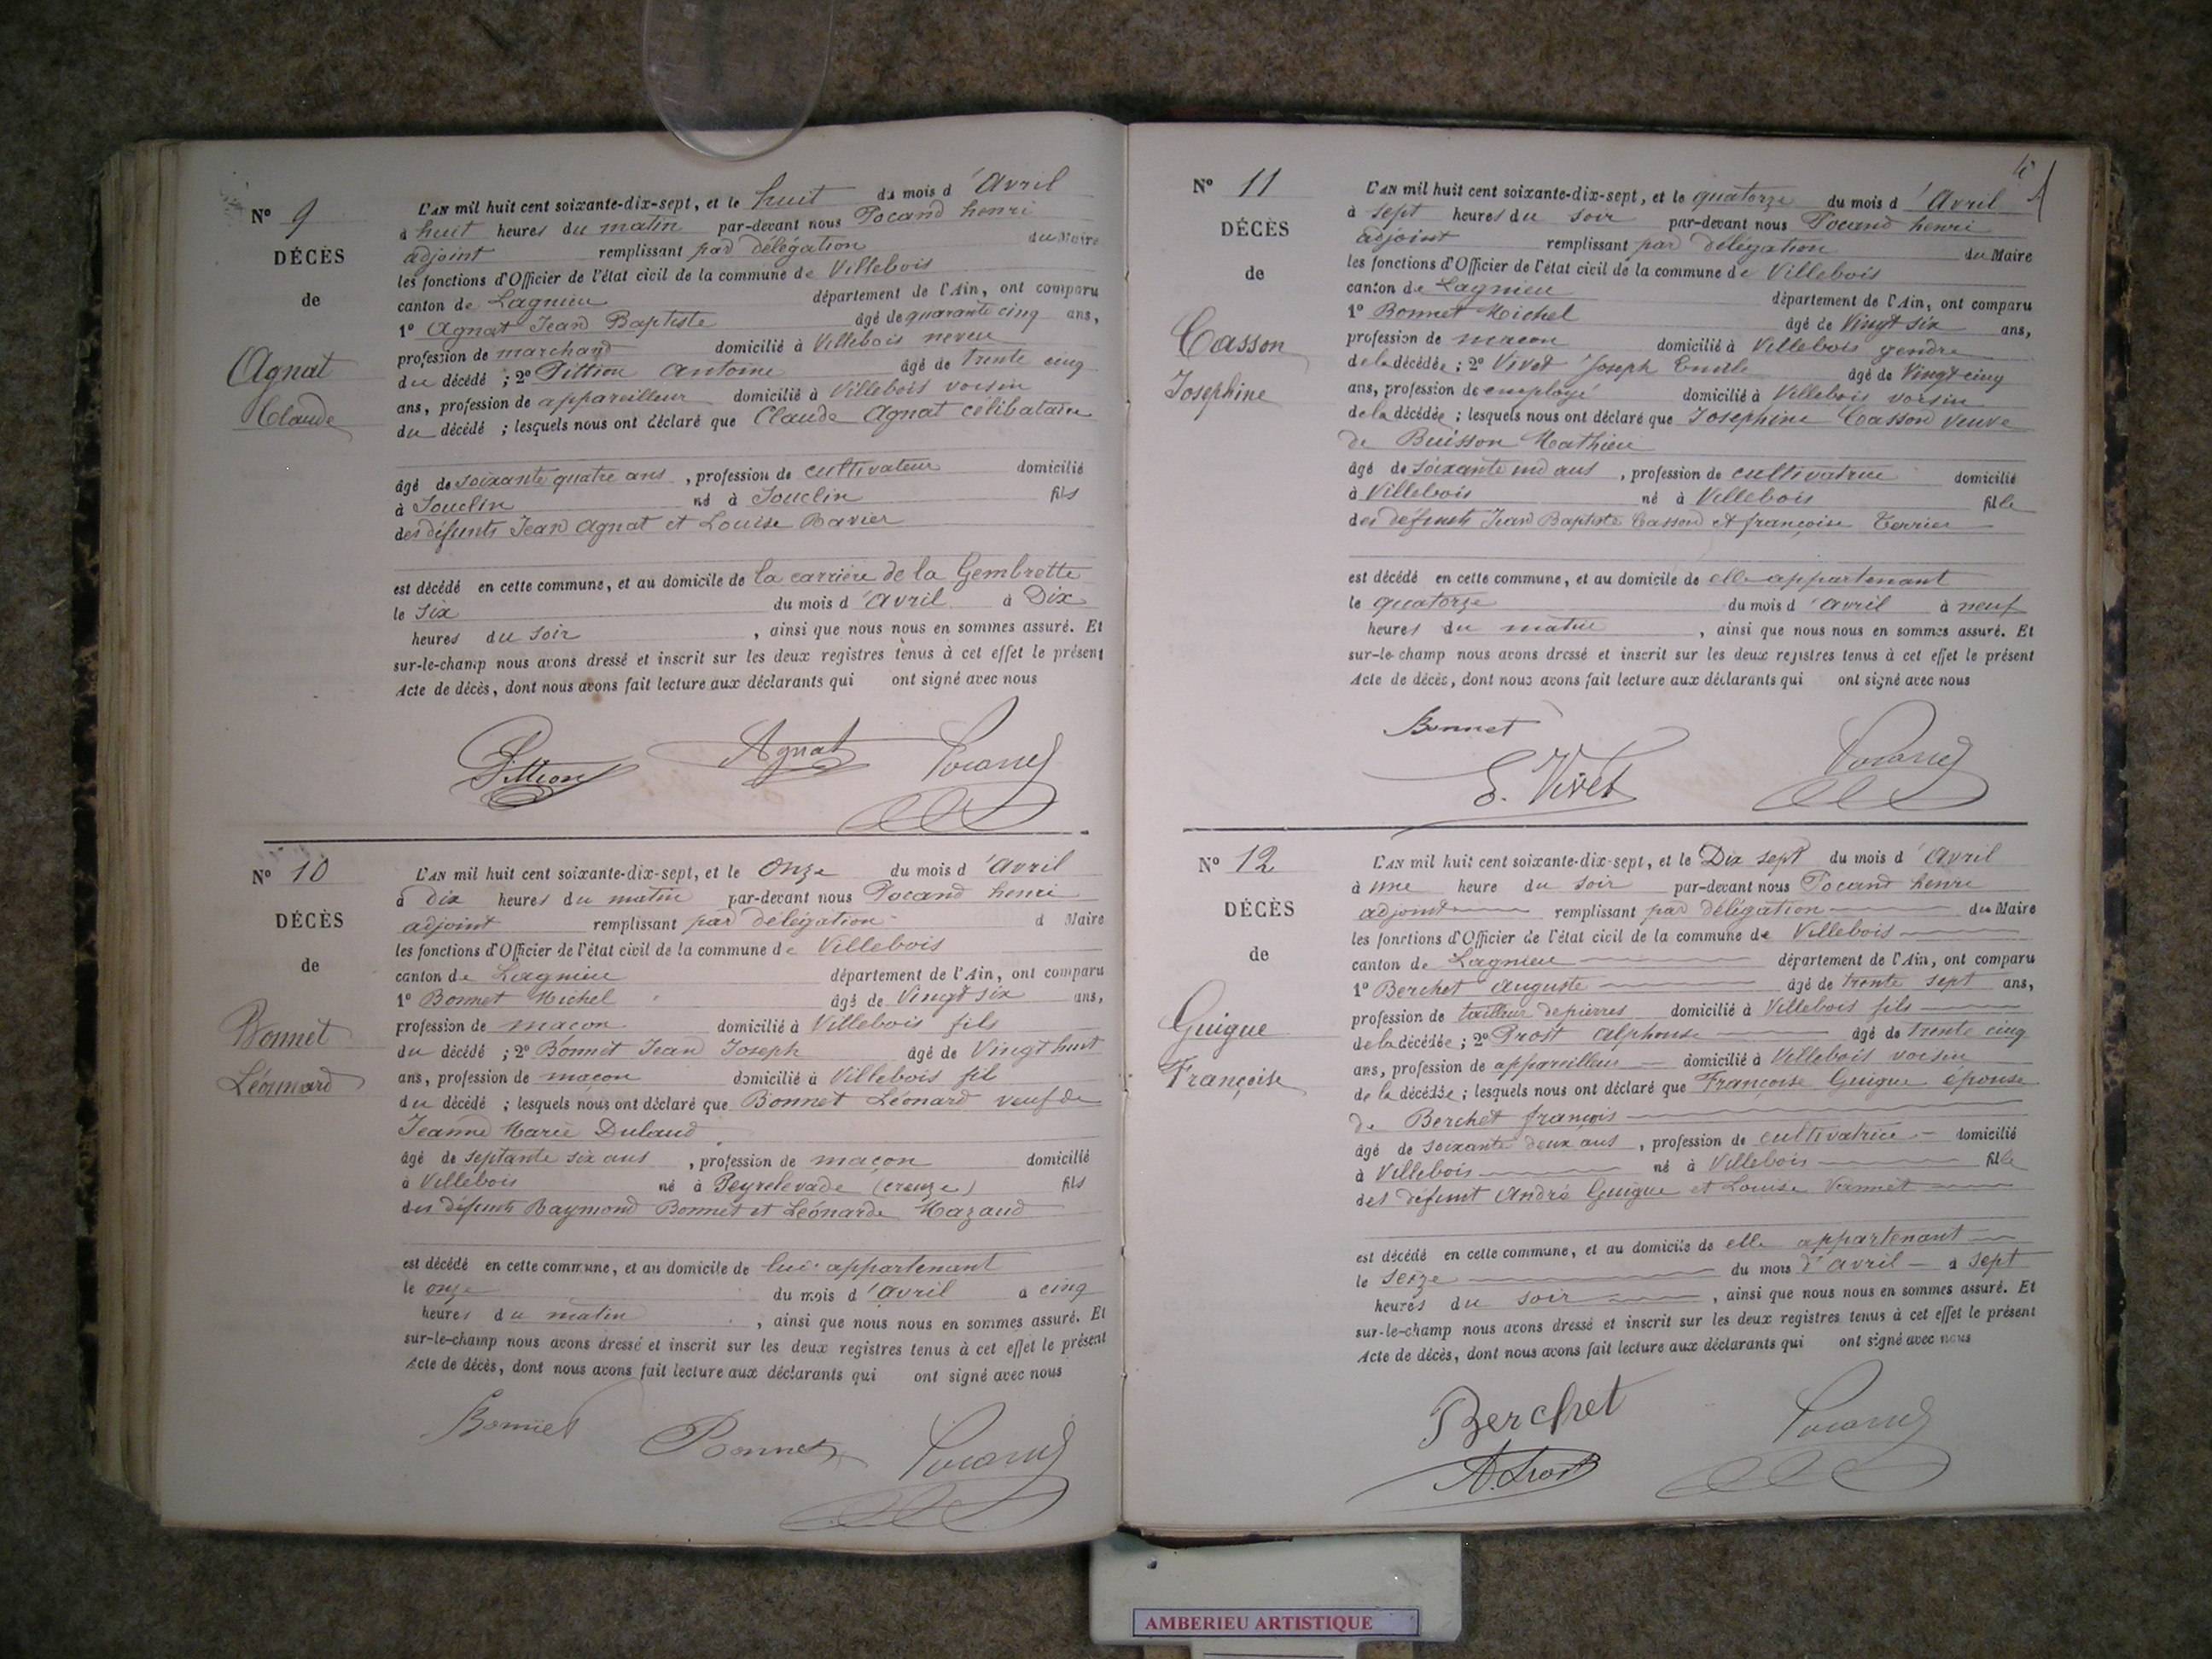 N° 9
DÉCÈS
de
Agnat
Claude
L'AN mil huit cent soixante-dix-sept, et le huit du mois d'Avril
à huit heures du matin par-devant nous Pocand henri
adjoint remplissant par délégation du Maire
les fonctions d'Officier de l'état civil de la commune de Villebois
canton de Lagnieu département de l'Ain, ont comparu
1° Agnat Jean Baptiste âgé de quarante cinq ans,
profession de marchand domicilié à Villebois neveu
du décédé ; 2° Pittion Antoine âgé de trente cinq
ans, profession de appareilleur domicilié à Villebois voisin
du décédé ; lesquels nous ont déclaré que Claude Agnat célibataire
âgé de soixante quatre ans, profession de cultivateur domicilié
à Souclin né à Souclin fils
des défunts Jean Agnat et Louise Bavier
est décédé en cette commune, et au domicile de la carrière de la Gembrette
le six du mois d'Avril à Dix
heures du soir, ainsi que nous nous en sommes assuré. Et
sur-le-champ nous avons dressé et inscrit sur les deux registres tenus à cet effet le présent
Acte de décès, dont nous avons fait lecture aux déclarants qui ont signé avec nous
Pittion Agnat Pocand
N° 10
DÉCÈS
de
Bonnet
Léonnard
L'AN mil huit cent soixante-dix-sept, et le onze du mois d'Avril
à dix heures du matin par-devant nous Pocand henri
adjoint remplissant par délégation d Maire
les fonctions d'Officier de l'état civil de la commune de Villebois
canton de Lagnieu département de l'Ain, ont comparu
1° Bonnet Michel âgé de Vingt six ans,
profession de maçon domicilié à Villebois fils
du décédé ; 2° Bonnet Jean Joseph âgé de Vingt huit
ans, profession de maçon domicilié à Villebois fil
du décédé ; lesquels nous ont déclaré que Bonnet Léonard veuf de
Jeanne Marie Dulaud
âgé de septante six ans, profession de maçon domicilié
à Villebois né à Peyrelevade (creuze) fils
des défunts Raymond Bonnet et Léonarde Mazaud
est décédé en cette commune, et au domicile de lui appartenant
le onze du mois d'avril à cinq
heures du matin, ainsi que nous nous en sommes assuré. Et
sur-le-champ nous avons dressé et inscrit sur les deux registres tenus à cet effet le présent
Acte de décès, dont nous avons fait lecture aux déclarants qui ont signé avec nous
Bonnet Bonnet Pocand
N° 11
DÉCÈS
de
Casson
Josephine
L'AN mil huit cent soixante-dix-sept, et le quatorze du mois d'Avril
à sept heures du soir par-devant nous Pocand henri
adjoint remplissant par délégation du Maire
les fonctions d'Officier de l'état civil de la commune de Villebois
canton de Lagnieu département de l'Ain, ont comparu
1° Bonnet Michel âgé de Vingt six ans,
profession de macon domicilié à Villebois gendre
de la décédée ; 2° Vivet Joseph Emile âgé de Vingt cinq
ans, profession de employé domicilié à Villebois voisin
de la décédée ; lesquels nous ont déclaré que Josephine Casson veuve
de Buisson Mathieu
âgé de soixante un ans, profession de cultivatrice domicilié
à Villebois né à Villebois fille
des défunts Jean Baptiste Casson et françoise Terrier
est décédé en cette commune, et au domicile de elle appartenant
le quatorze du mois d'avril à neuf
heures du matin, ainsi que nous nous en sommes assuré. Et
sur-le-champ nous avons dressé et inscrit sur les deux registres tenus à cet effet le présent
Acte de décès, dont nous avons fait lecture aux déclarants qui ont signé avec nous
Bonnet
E. Vivet Pocand
N° 12
DÉCÈS
de
Guigue
Françoise
L'AN mil huit cent soixante-dix-sept, et le Dix sept du mois d'Avril
à une heure du soir par-devant nous Pocand henri
adjoint remplissant par délégation du Maire
les fonctions d'Officier de l'état civil de la commune de Villebois
canton de Lagnieu département de l'Ain, ont comparu
1° Berchet Auguste âgé de trente sept ans,
profession de tailleur de pierres domicilié à Villebois fils
de la décédée ; 2° Prost Alphonse âgé de trente cinq
ans, profession de appareilleur domicilié à Villebois voisin
de la décédée ; lesquels nous ont déclaré que Françoise Guigue épouse
de Berchet françois
âgé de soixante deux ans, profession de cultivatrice domicilié
à Villebois né à Villebois fille
des défunt André Guigue et Louise Vermet
est décédé en cette commune, et au domicile de elle appartenant
le seize du mois d'avril à sept
heures du soir, ainsi que nous nous en sommes assuré. Et
sur-le-champ nous avons dressé et inscrit sur les deux registres tenus à cet effet le présent
Acte de décès, dont nous avons fait lecture aux déclarants qui ont signé avec nous
Berchet Pocand
A. Prost
AMBERIEU ARTISTIQUE